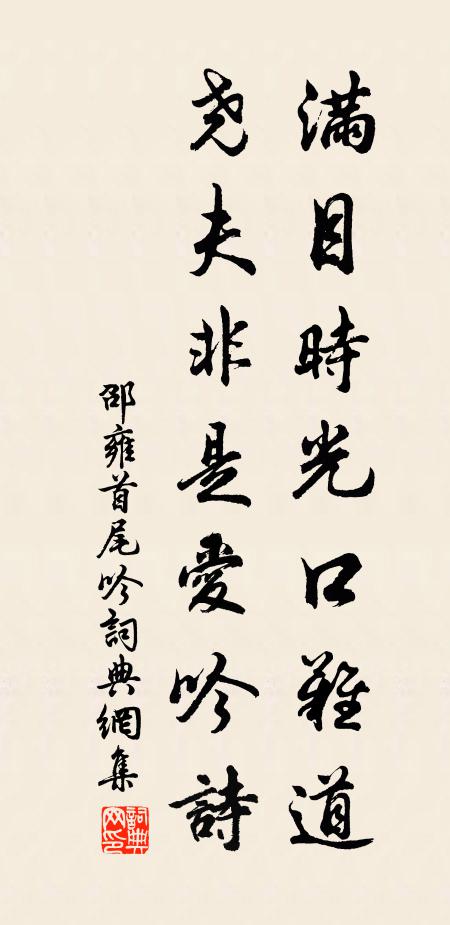 滿目時光口難道
堯夫非是愛吟詩
邵雍首尾吟詞典網集
詞典網印